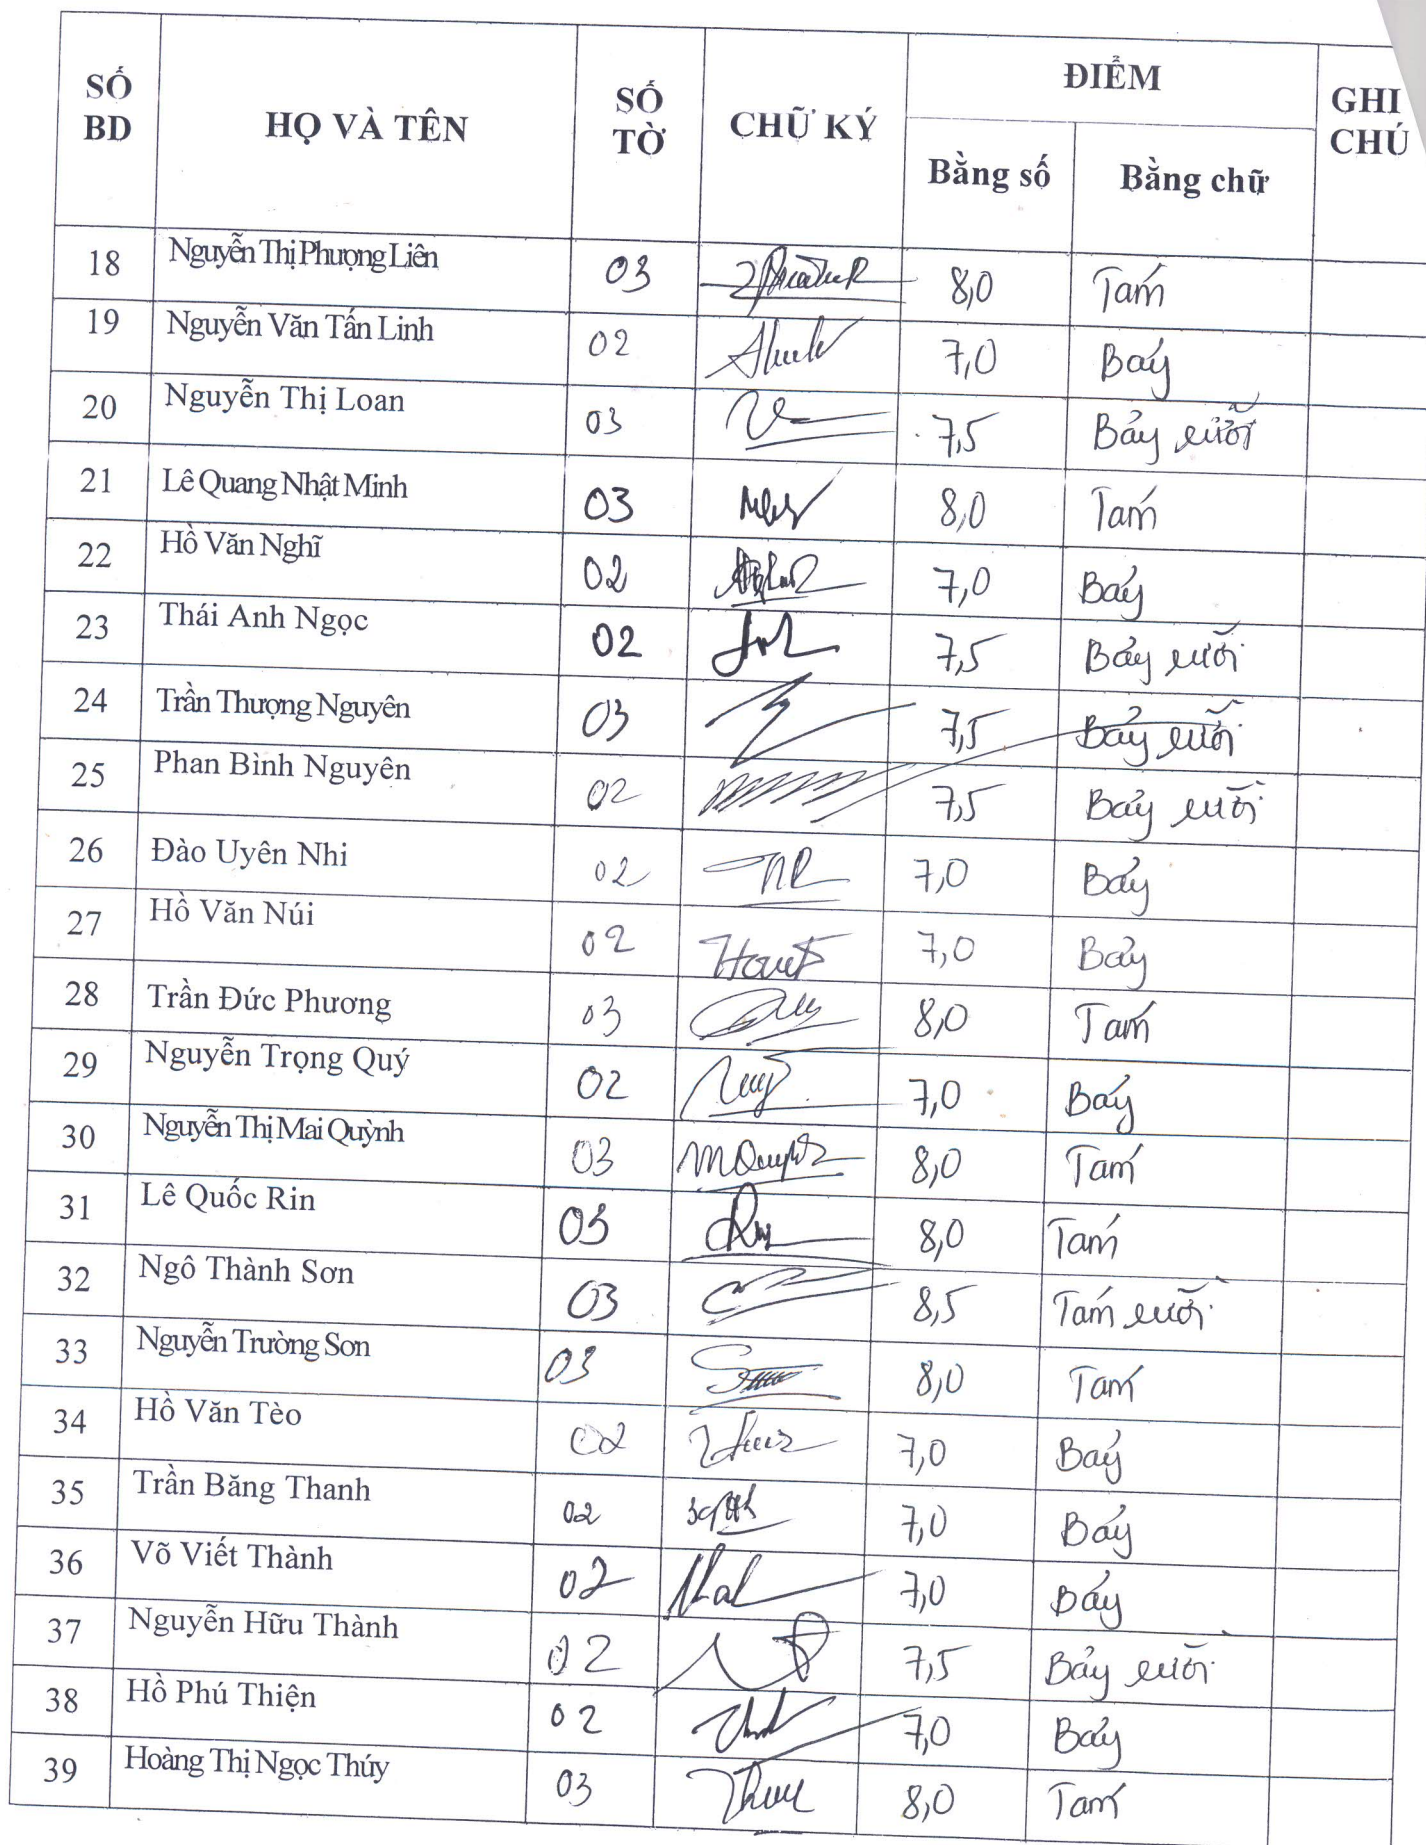 SỐ BD HỌ VÀ TÊN SỐ TỜ CHỮ KÝ ĐIỂM GHI CHÚ
Bằng số Bằng chữ
18 Nguyễn Thị Phượng Liên 03 8,0 Tám
19 Nguyễn Văn Tấn Linh 02 7,0 Bảy
20 Nguyễn Thị Loan 03 7,5 Bảy rưỡi
21 Lê Quang Nhật Minh 03 8,0 Tám
22 Hồ Văn Nghĩ 02 7,0 Bảy
23 Thái Anh Ngọc 02 7,5 Bảy rưỡi
24 Trần Thượng Nguyên 03 7,5 Bảy rưỡi
25 Phan Bình Nguyên 02 7,5 Bảy rưỡi
26 Đào Uyên Nhi 02 7,0 Bảy
27 Hồ Văn Núi 02 7,0 Bảy
28 Trần Đức Phương 03 8,0 Tám
29 Nguyễn Trọng Quý 02 7,0 Bảy
30 Nguyễn Thị Mai Quỳnh 03 8,0 Tám
31 Lê Quốc Rin 03 8,0 Tám
32 Ngô Thành Sơn 03 8,5 Tám rưỡi
33 Nguyễn Trường Sơn 03 8,0 Tám
34 Hồ Văn Tèo 02 7,0 Bảy
35 Trần Băng Thanh 02 7,0 Bảy
36 Võ Viết Thành 02 7,0 Bảy
37 Nguyễn Hữu Thành 02 7,5 Bảy rưỡi
38 Hồ Phú Thiện 02 7,0 Bảy
39 Hoàng Thị Ngọc Thúy 03 Thuy 8,0 Tám